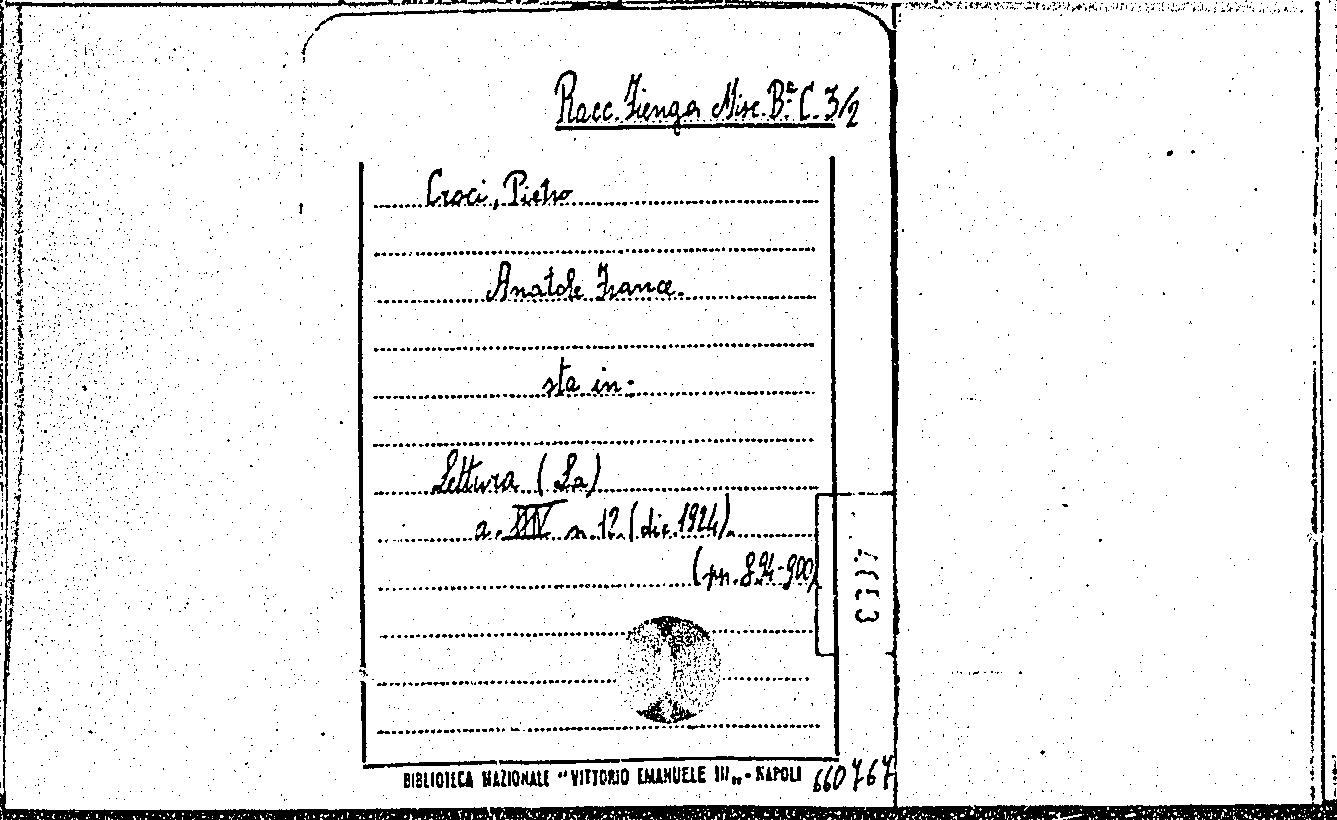 Racc. Fienga Misc. Bª C. 3/2
Croci, Pietro
Anatole France.
sta in:
Lettura (La)
a. XXIV n. 12. (dic. 1924).
(pp. 894-900)
BIBLIOTECA NAZIONALE "VITTORIO EMANUELE III„ - NAPOLI
660767